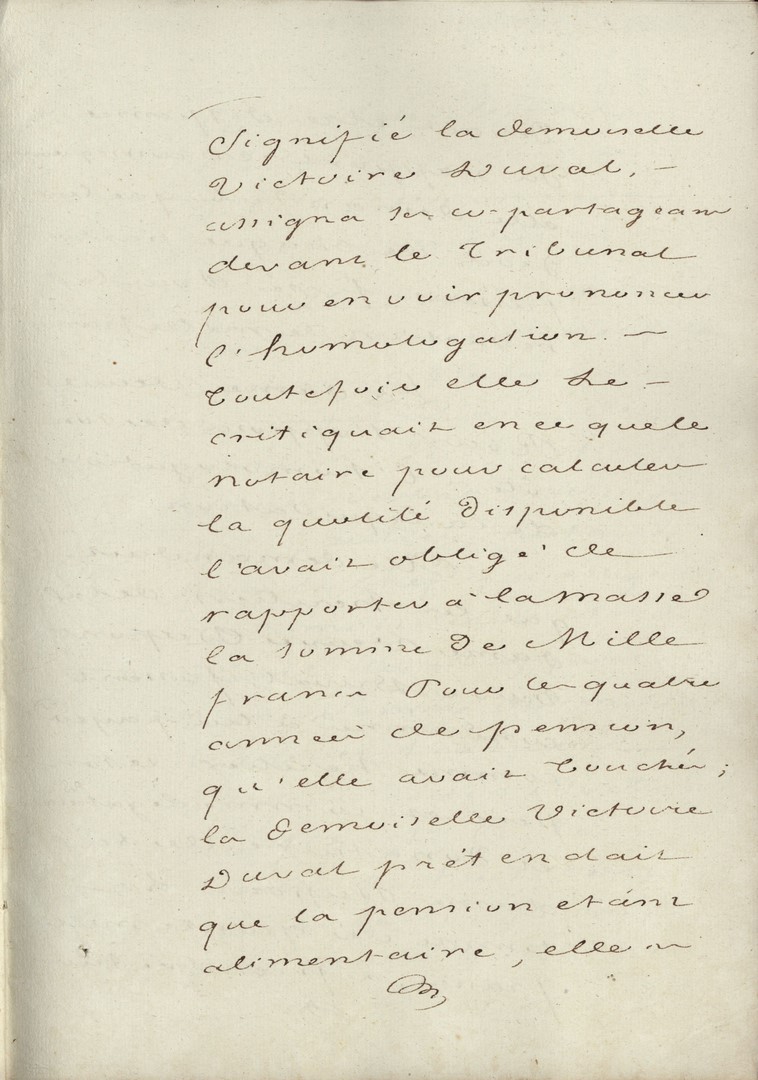 Signifié la demoiselle
Victoire Duval, —
assigna ses co-partageans
devant le Tribunal
pour en voir prononcer
l'homologation. —
Toutefois elle le —
critiquait en ce que le
notaire pour calculer
la quotité disponible
l'avait obligé de
rapporter à la masse
la somme de Mille
francs Pour les quatre
années de pension,
qu'elle avait touchés ;
la demoiselle Victoire
Duval prétendait
que la pension etant
alimentaire, elle n